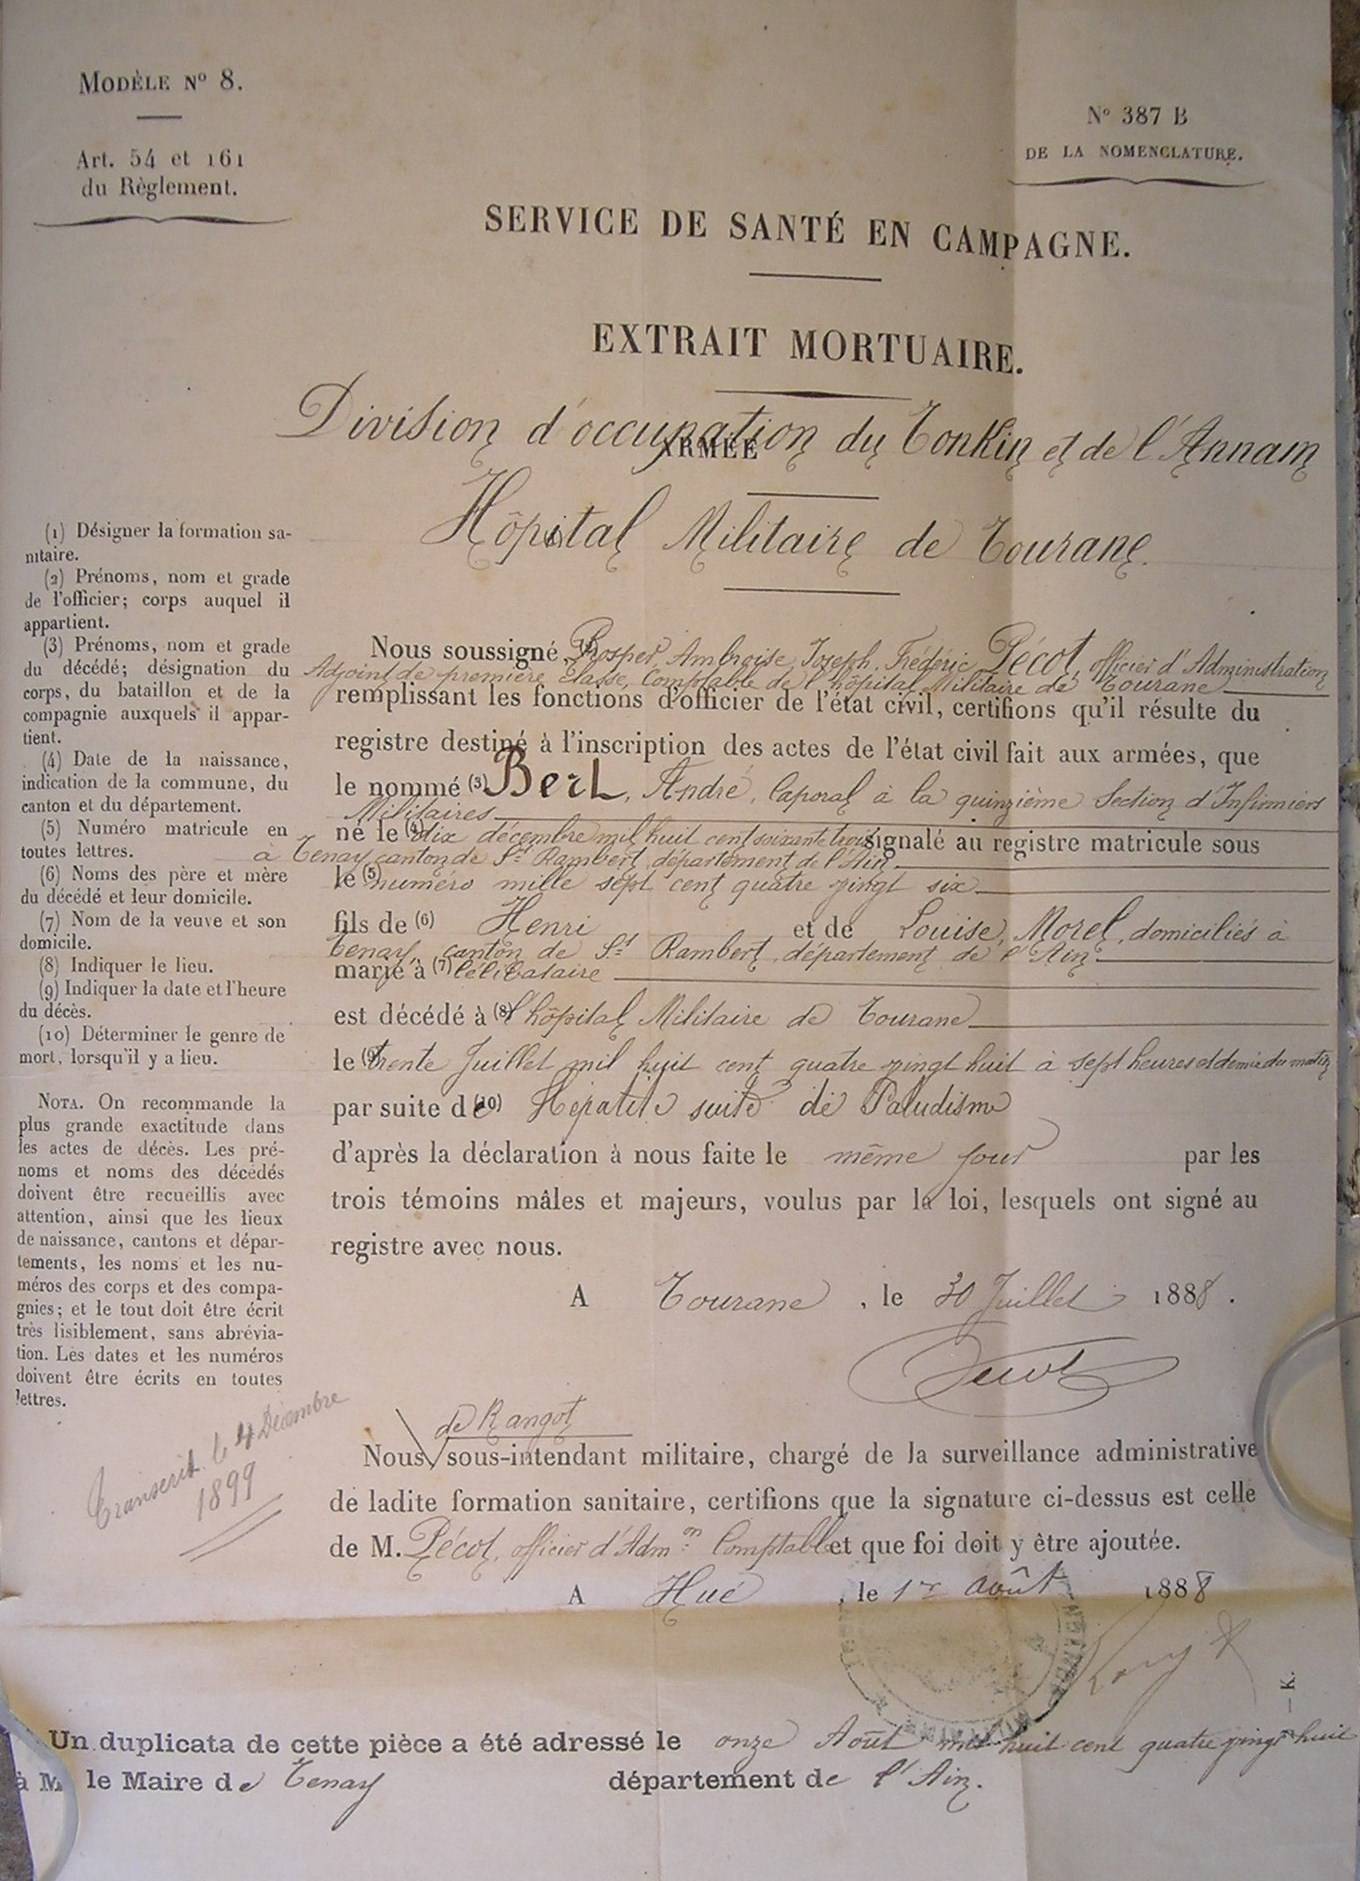 MODÈLE Nº 8.
Art. 54 et 161
du Règlement.
Nº 387 B
DE LA NOMENCLATURE.
SERVICE DE SANTÉ EN CAMPAGNE.
EXTRAIT MORTUAIRE.
Division d'occupation du Tonkin et de l'Annam
ARMÉE
Hôpital Militaire de Tourane.
(1) Désigner la formation sa-
nitaire.
(2) Prénoms, nom et grade
de l'officier; corps auquel il
appartient.
(3) Prénoms, nom et grade
du décédé; désignation du
corps, du bataillon et de la
compagnie auxquels il appar-
tient.
(4) Date de la naissance,
indication de la commune, du
canton et du département.
(5) Numéro matricule en
toutes lettres.
(6) Noms des père et mère
du décédé et leur domicile.
(7) Nom de la veuve et son
domicile.
(8) Indiquer le lieu.
(9) Indiquer la date et l'heure
du décès.
(10) Déterminer le genre de
mort, lorsqu'il y a lieu.
NOTA. On recommande la
plus grande exactitude dans
les actes de décès. Les pré-
noms et noms des décédés
doivent être recueillis avec
attention, ainsi que les lieux
de naissance, cantons et dépar-
tements, les noms et les nu-
méros des corps et des compa-
gnies; et le tout doit être écrit
très lisiblement, sans abrévia-
tion. Les dates et les numéros
doivent être écrits en toutes
lettres.
Transcrit le 4 Décembre
1899
Nous soussigné, Prosper, Ambroise, Joseph, Frédéric Pécot, officier d'Administration
Adjoint de première Classe, Comptable de l'hôpital Militaire de Tourane
remplissant les fonctions d'officier de l'état civil, certifions qu'il résulte du
registre destiné à l'inscription des actes de l'état civil fait aux armées, que
le nommé (3) Berl, André, Caporal à la quinzième Section d'Infirmiers
Militaires
né le (4) dix décembre mil huit cent soixante trois signalé au registre matricule sous
à Tenay, canton de St Rambert, département de l'Ain
le (5) numéro mille sept cent quatre vingt six
fils de (6) Henri et de Louise, Morel, domiciliés à
Tenay, canton de St Rambert, département de l'Ain
marié à (7) Célibataire
est décédé à (8) l'hôpital Militaire de Tourane
le (9) trente Juillet mil huit cent quatre vingt huit à sept heures et demie du matin
par suite de (10) Hépatite suite de Paludisme
d'après la déclaration à nous faite le même jour par les
trois témoins mâles et majeurs, voulus par la loi, lesquels ont signé au
registre avec nous.
A Tourane, le 30 Juillet 1888.
Pécot
de Rangot
Nous sous-intendant militaire, chargé de la surveillance administrative
de ladite formation sanitaire, certifions que la signature ci-dessus est celle
de M. Pécot, officier d'Admon Comptable et que foi doit y être ajoutée.
A Hué, le 1er Août 1888
Un duplicata de cette pièce a été adressé le onze Août mil huit cent quatre vingt huit
à M le Maire de Tenay département de l'Ain.